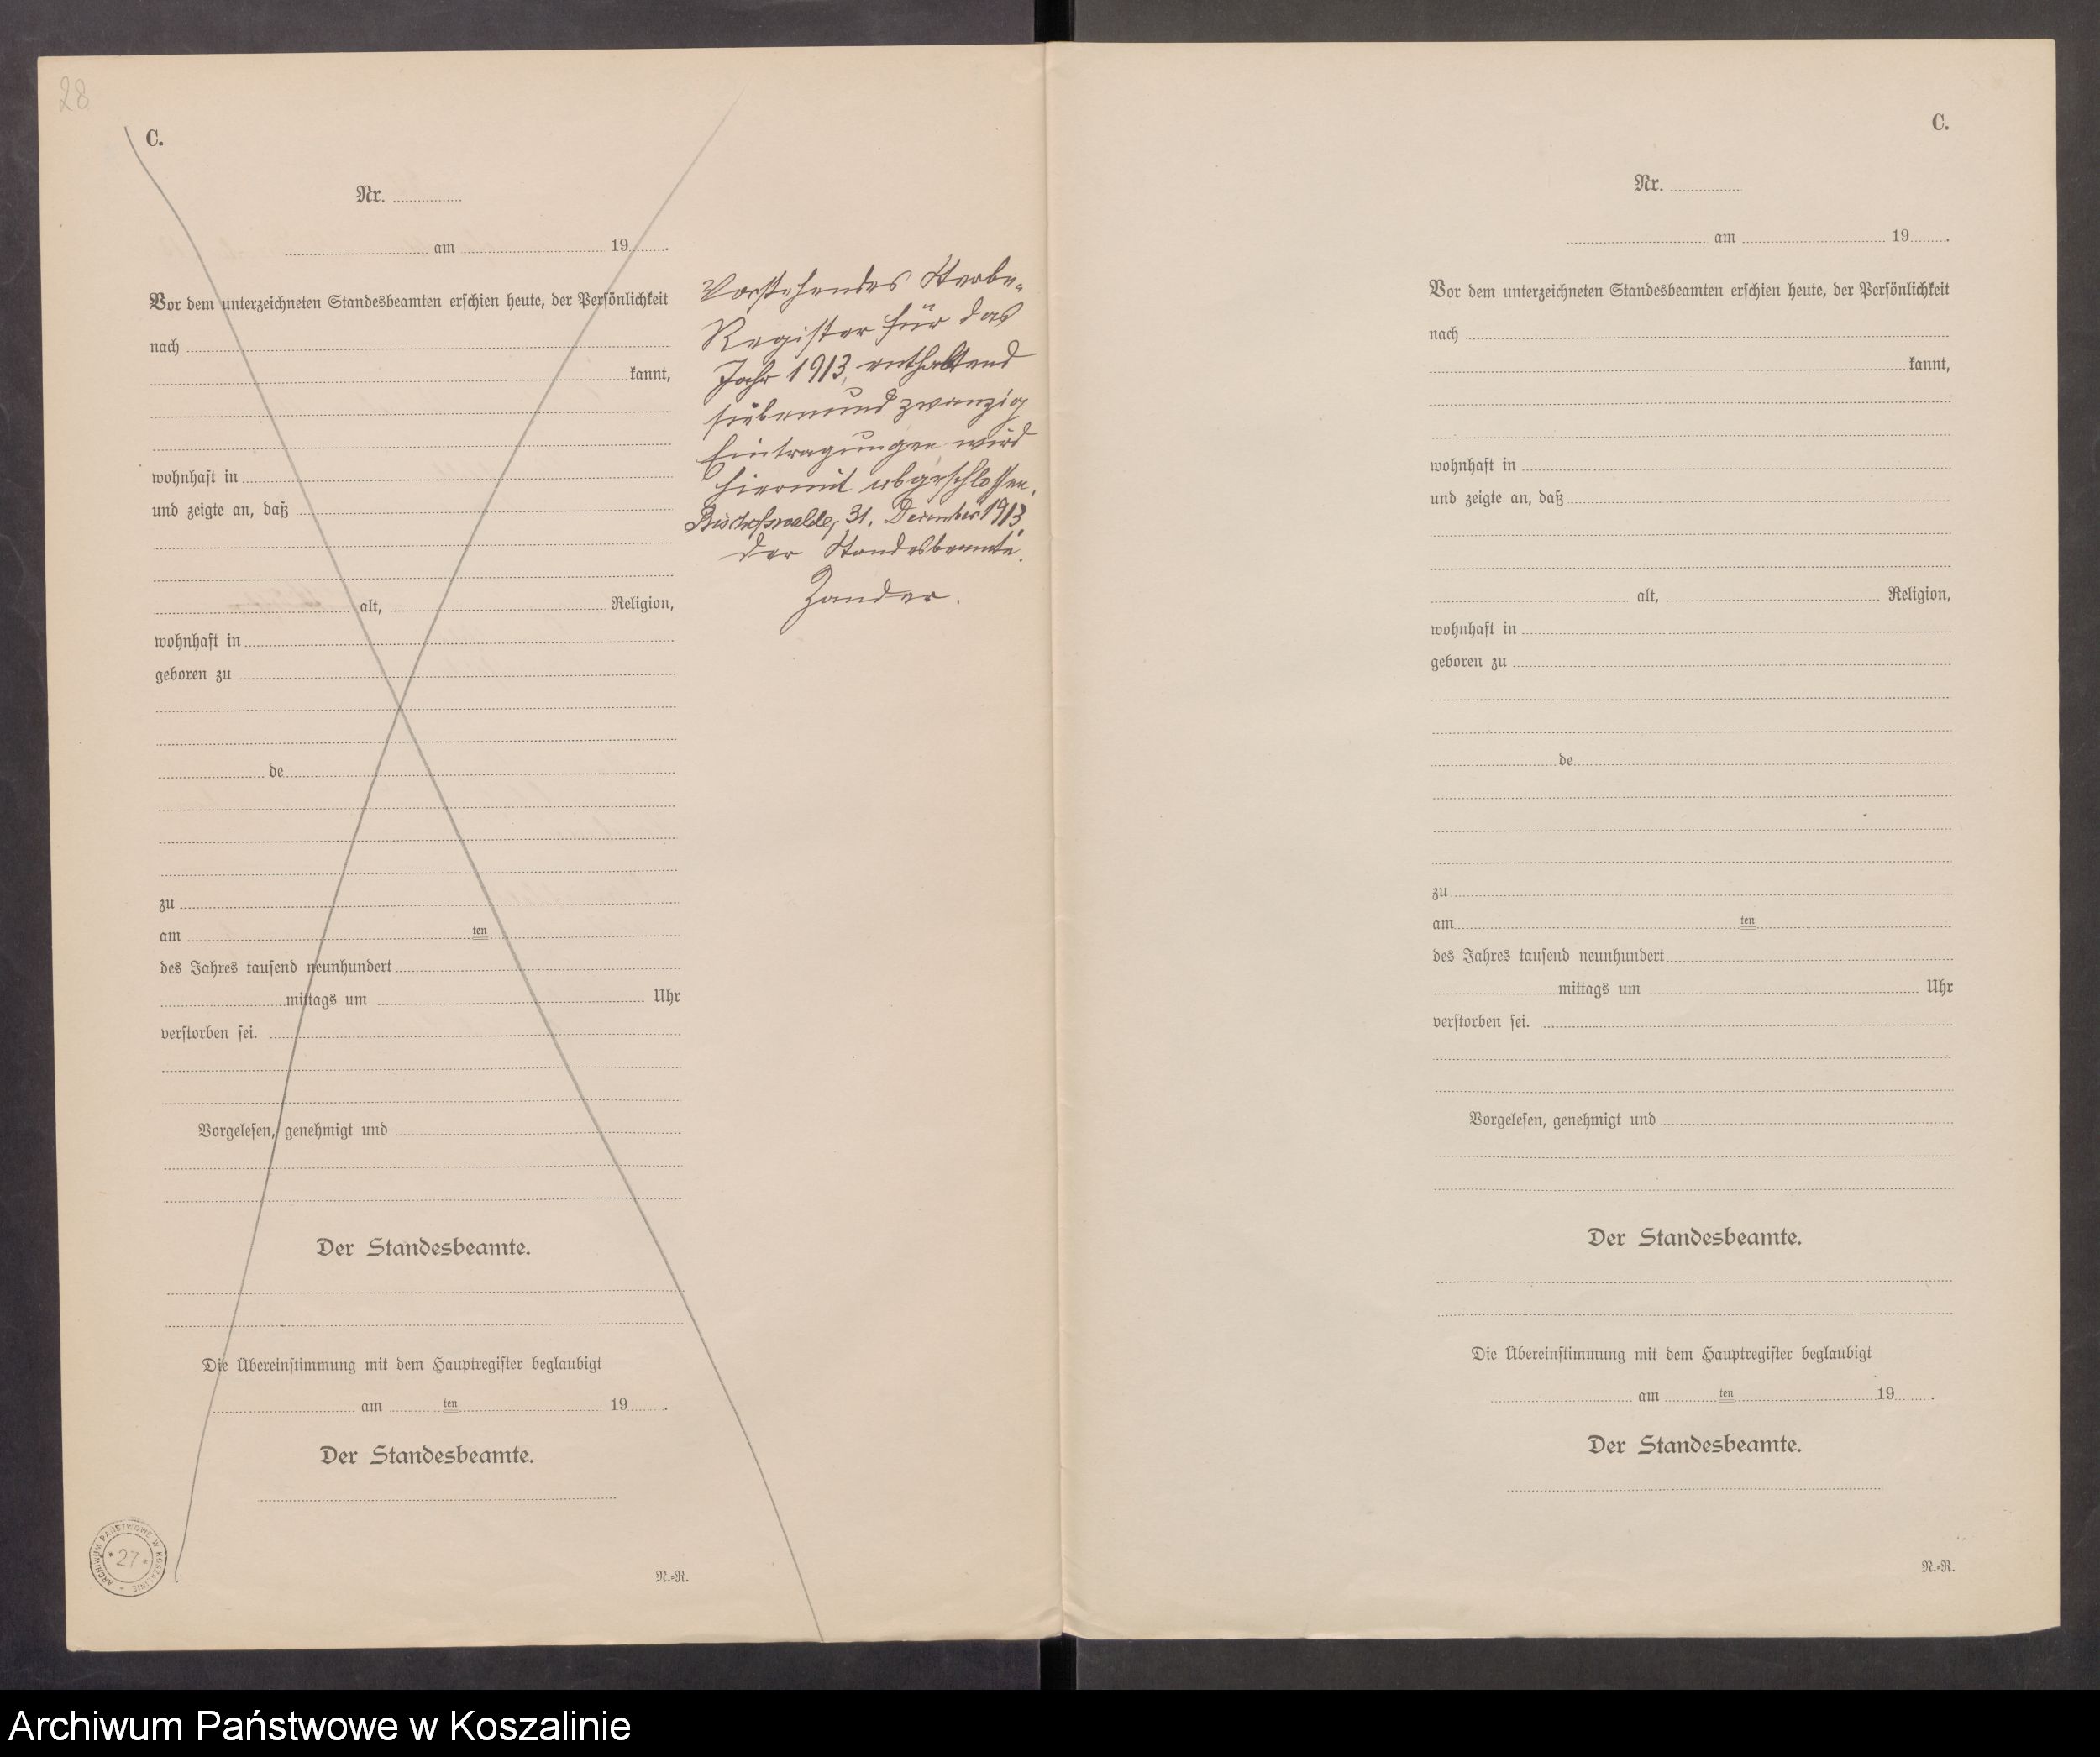 28
C.
Nr.
am 19 .
Vor dem unterzeichneten Standesbeamten erschien heute, der Persönlichkeit
nach
kannt,
wohnhaft in
und zeigte an, daß
alt, Religion,
wohnhaft in
geboren zu
de
zu
am ten
des Jahres tausend neunhundert
mittags um Uhr
verstorben sei.
Vorgelesen, genehmigt und
Der Standesbeamte.
Die Übereinstimmung mit dem Hauptregister beglaubigt
am ten 19 .
Der Standesbeamte.
N.-R.
ARCHIWUM PAŃSTWOWE W KOSZALINIE
* 27 *
Vorstehendes Sterbe-
Register für das
Jahr 1913, enthaltend
siebenund zwanzig
Eintragungen, wird
hiermit abgeschlossen.
Bischofswalde, 31. Dezember 1913.
Der Standesbeamte.
Zander.
C.
Nr.
am 19 .
Vor dem unterzeichneten Standesbeamten erschien heute, der Persönlichkeit
nach
kannt,
wohnhaft in
und zeigte an, daß
alt, Religion,
wohnhaft in
geboren zu
de
zu
am ten
des Jahres tausend neunhundert
mittags um Uhr
verstorben sei.
Vorgelesen, genehmigt und
Der Standesbeamte.
Die Übereinstimmung mit dem Hauptregister beglaubigt
am ten 19 .
Der Standesbeamte.
N.-R.
Archiwum Państwowe w Koszalinie